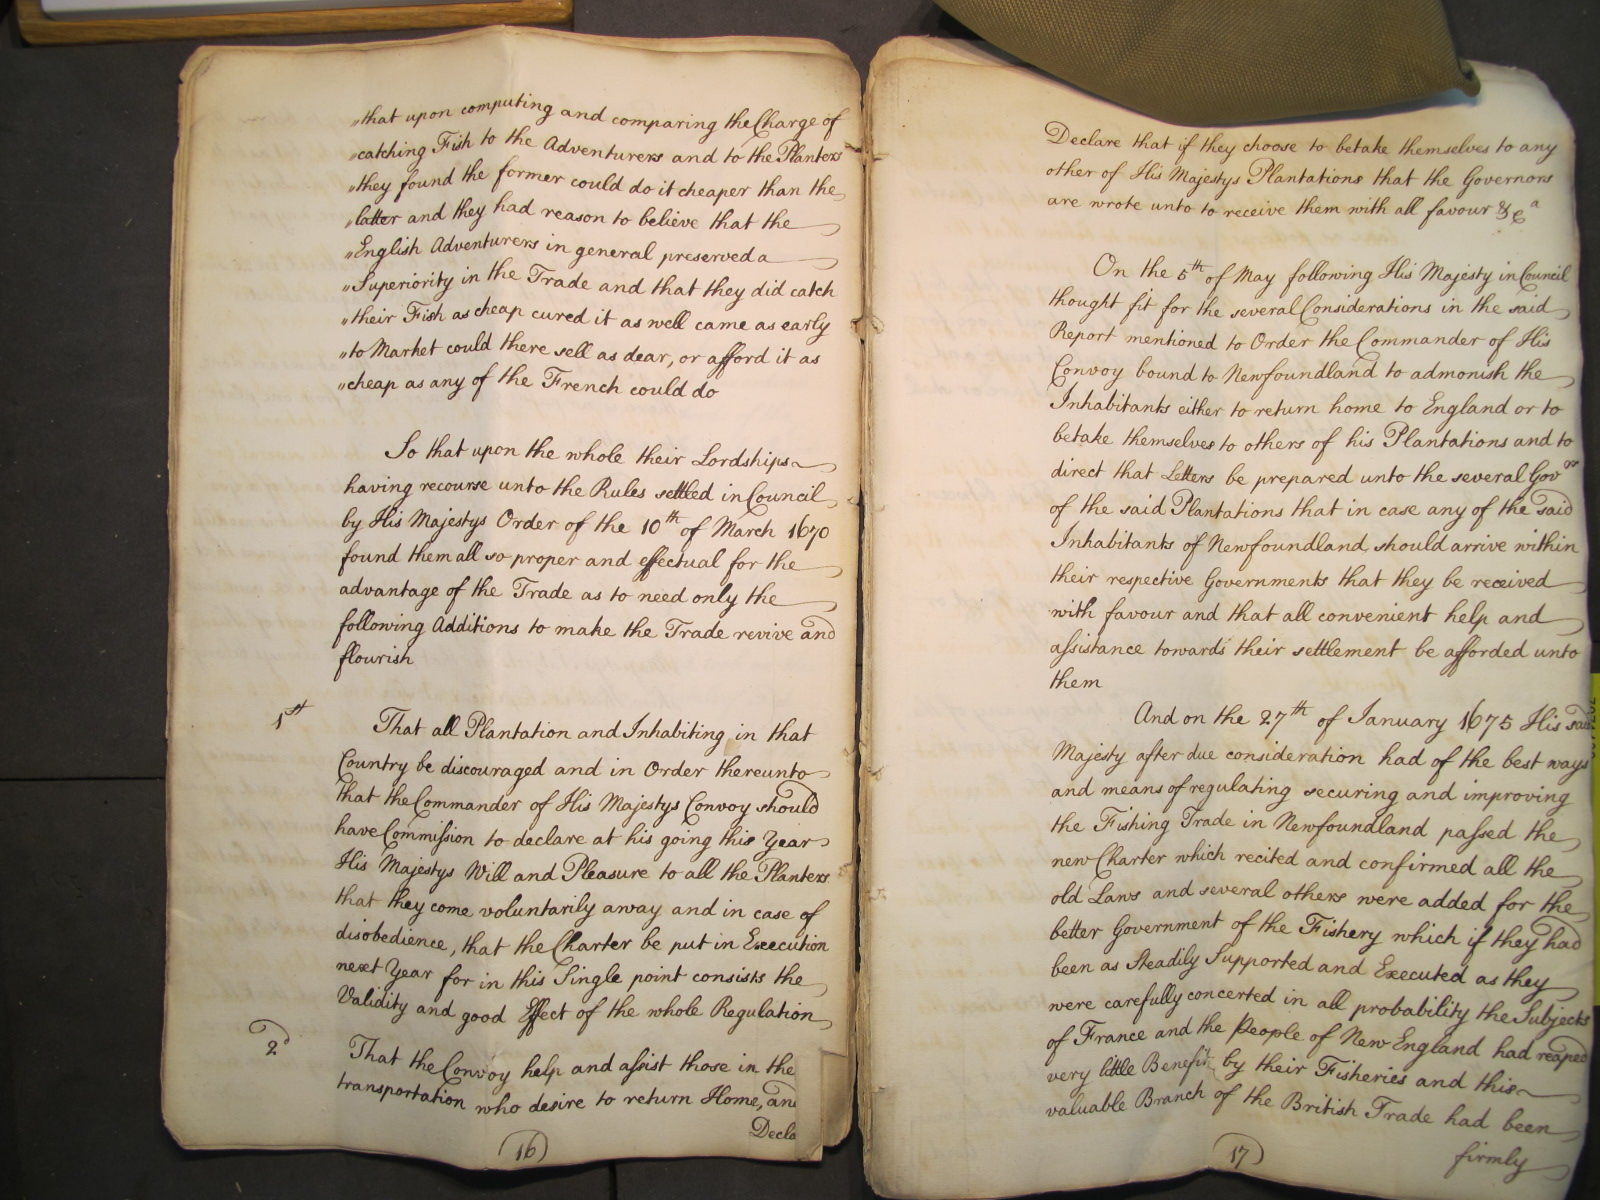 „that upon computing and comparing the Charge of
„catching Fish to the Adventurers and to the Planters
„they found the former could do it cheaper than the
„latter and they had reason to believe that the
„English Adventurers in general preserved a
„Superiority in the Trade and that they did catch
„their Fish as cheap cured it as well came as early
„to Market could there sell as dear, or afford it as
„cheap as any of the French could do
So that upon the whole their Lordships
having recourse unto the Rules settled in Council
by His Majestys Order of the 10th of March 1670
found them all so proper and effectual for the
advantage of the Trade as to need only the
following Additions to make the Trade revive and
flourish
1st That all Plantation and Inhabiting in that
Country be discouraged and in Order thereunto
that the Commander of His Majestys Convoy should
have Commission to declare at his going this Year
His Majestys Will and Pleasure to all the Planters
that they come voluntarily away and in case of
disobedience, that the Charter be put in Execution
next Year for in this Single point consists the
Validity and good Effect of the whole Regulation
2d That the Convoy help and assist those in the
transportation who desire to return Home, and
Decla
16
Declare that if they choose to betake themselves to any
other of His Majestys Plantations that the Governors
are wrote unto to receive them with all favour &ca
On the 5th of May following His Majesty in Council
thought fit for the several Considerations in the said
Report mentioned to Order the Commander of His
Convoy bound to Newfoundland to admonish the
Inhabitants either to return home to England or to
betake themselves to others of his Plantations and to
direct that Letters be prepared unto the several Govrs
of the said Plantations that in case any of the said
Inhabitants of Newfoundland should arrive within
their respective Governments that they be received
with favour and that all convenient help and
assistance towards their settlement be afforded unto
them
And on the 27th of January 1675 His said
Majesty after due consideration had of the best ways
and means of regulating securing and improving
the Fishing Trade in Newfoundland passed the
new Charter which recited and confirmed all the
old Laws and several others were added for the
better Government of the Fishery which if they had
been as Steadily Supported and Executed as they
were carefully concerted in all probability the Subjects
of France and the People of New England had reaped
very little Benefit by their Fisheries and this
valuable Branch of the British Trade had been
firmly
17